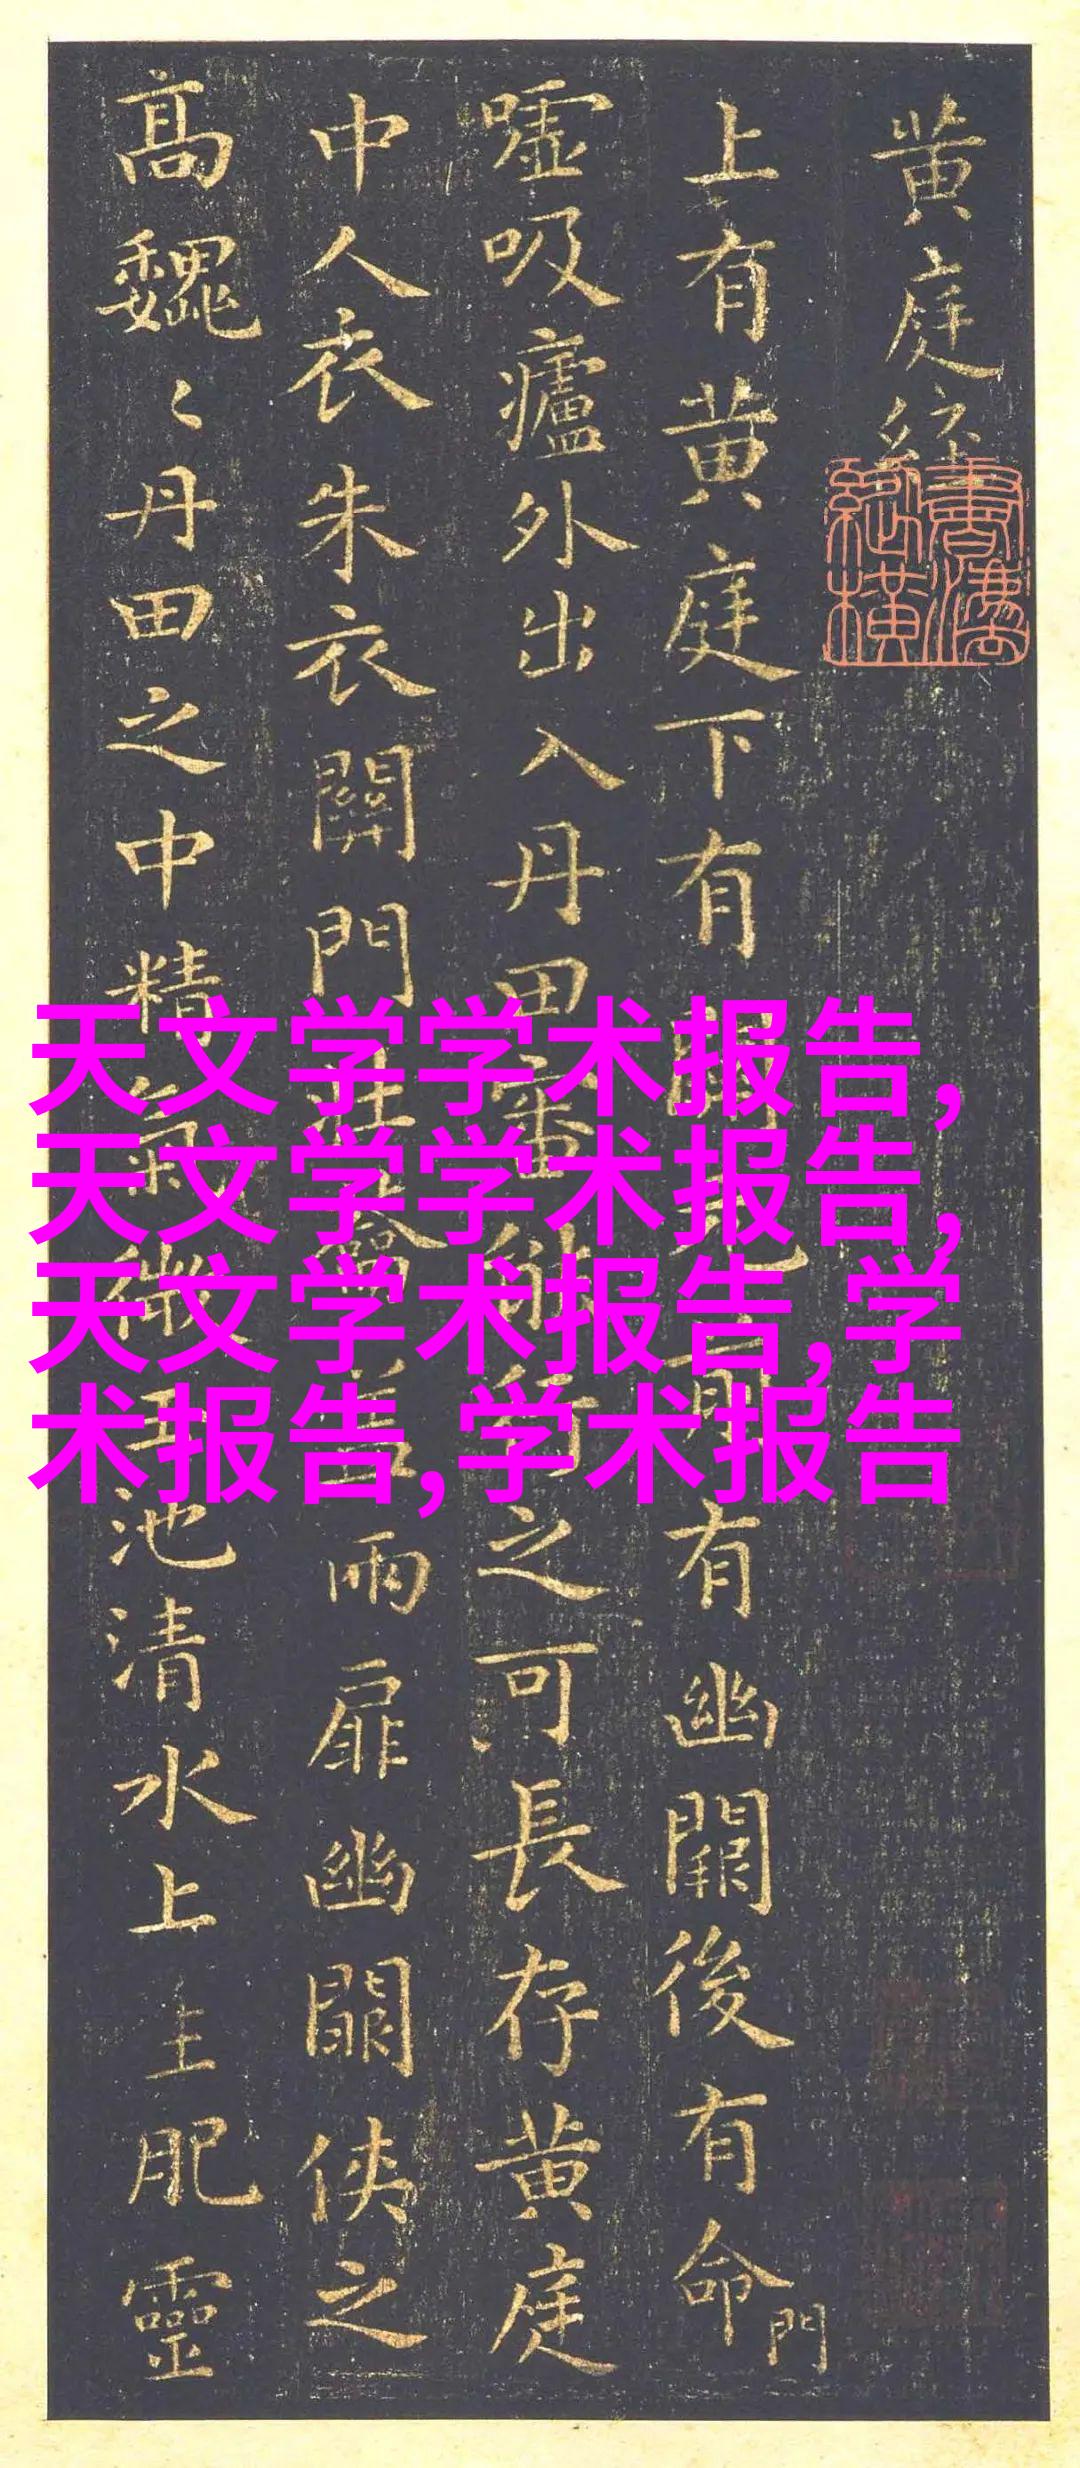 黄庭經
上有黄庭下有關元前有幽闕後有命門
嘘吸廬外出入丹田審能行之可長存黄庭
中人衣朱衣關門壯籥蓋兩扉幽闕俠之
高魏〻丹田之中精氣微玉池清水上生肥靈
天文学学术报告,
天文学学术报告,
天文学术报告,学
术报告,学术报告